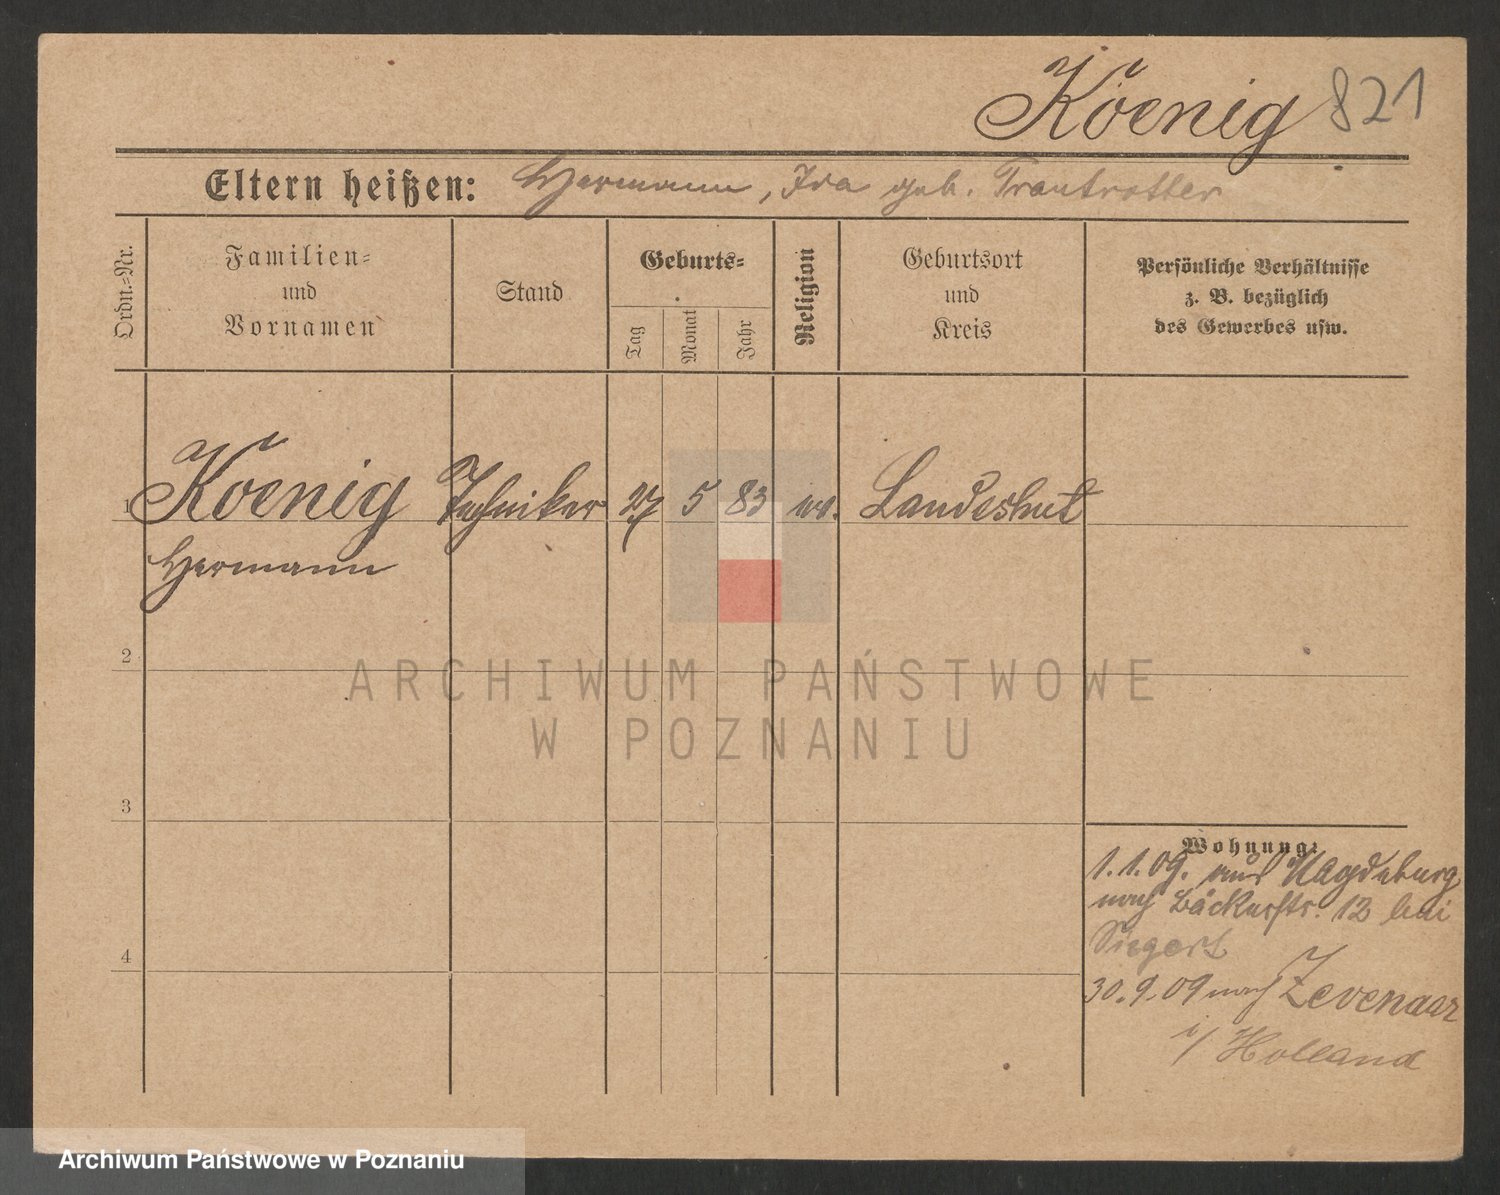 Koenig 821
Eltern heißen: Hermann, Ida geb. Trautrotter
Ordn.-Nr.
Familien-
und
Vornamen
Stand
Geburts-
Tag
Monat
Jahr
Religion
Geburtsort
und
Kreis
Persönliche Verhältnisse
z. B. bezüglich
des Gewerbes usw.
1 Koenig Techniker 27 5 83 ev. Landeshut
Hermann
2
ARCHIWUM PAŃSTWOWE
W POZNANIU
3
Wohnung:
1.1.09. aus Magdeburg
nach Bäckerstr. 12 bei
Siegert
4
30.9.09 nach Zevenaar
i/ Holland
Archiwum Państwowe w Poznaniu